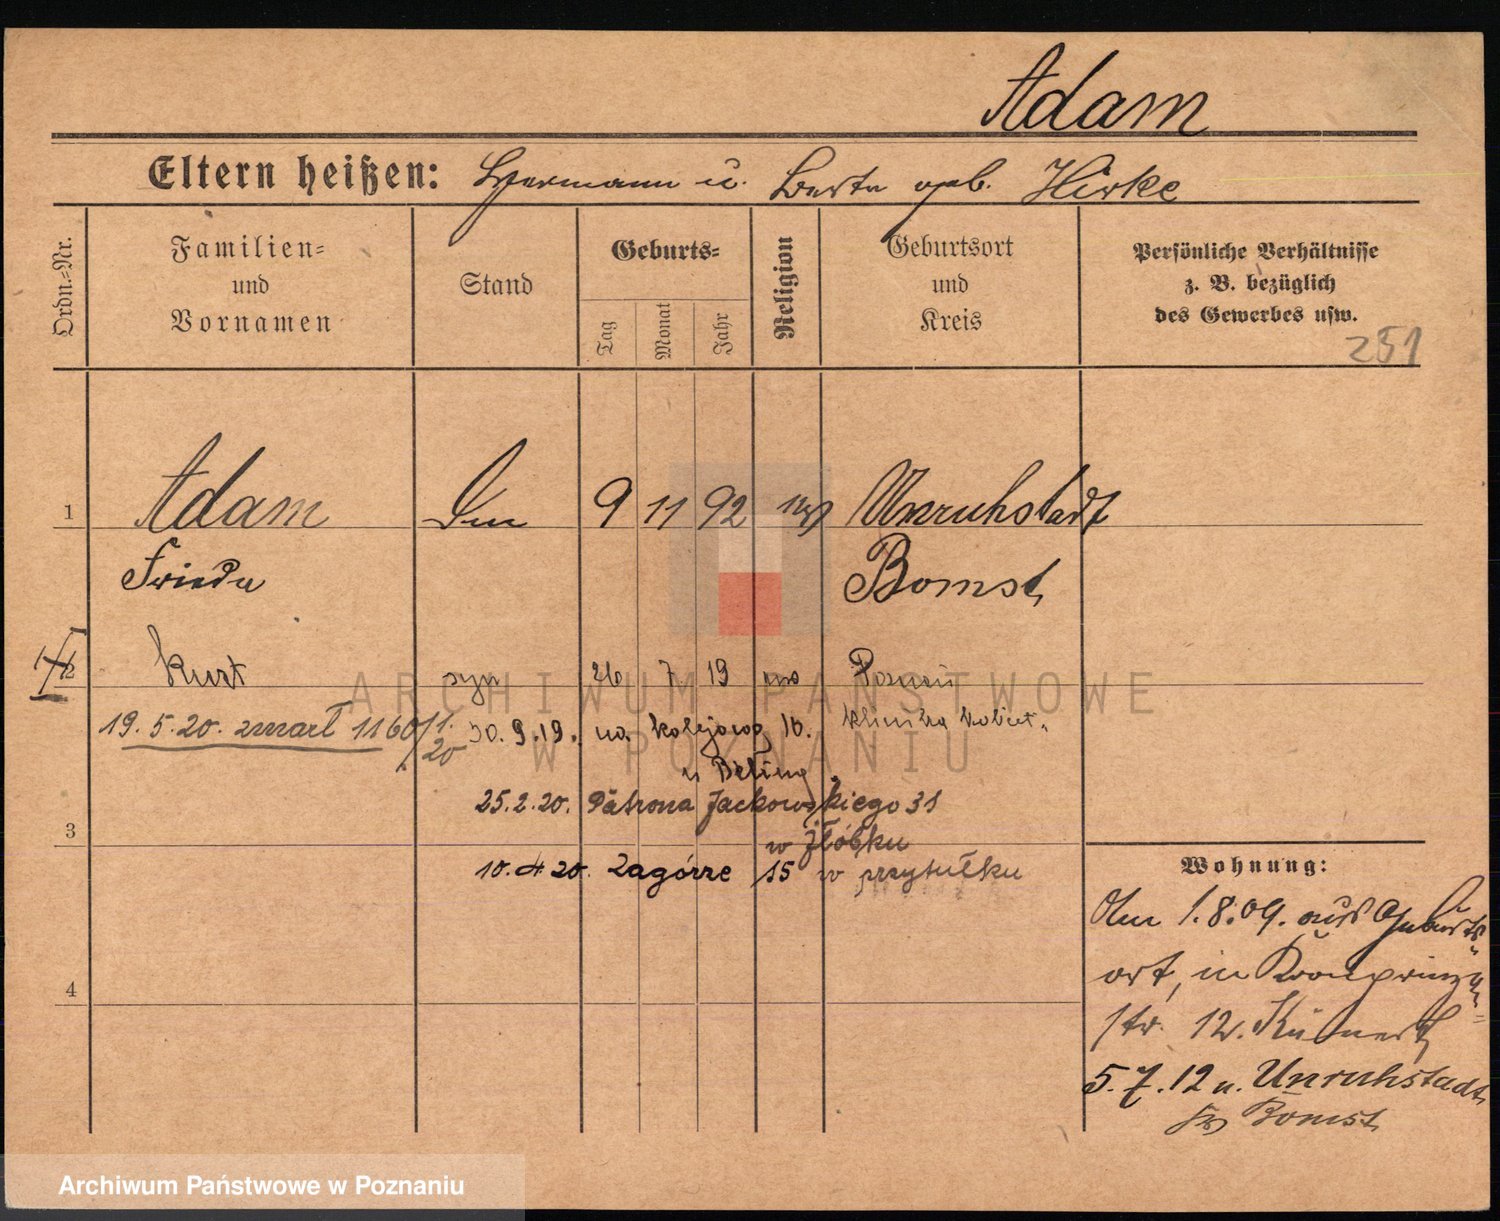 Adam
Eltern heißen: Hermann u. Berta geb. Hirke
Ordn.=Nr.
Familien=
und
Vornamen
Stand
Geburts=
Tag
Monat
Jahr
Religion
Geburtsort
und
Kreis
Persönliche Verhältnisse
z. B. bezüglich
des Gewerbes usw.
251
1 Adam 9 11 92 Unruhstadt
Frieda Bomst
2 Kurt syn 26 7 19 Poznań
19.5.20. zmarł 1160/1.20 30.9.19. na kolejową 10. klinika kobiet.
u Beling
25.2.20. Patrona Jackowskiego 31
w żłóbku
3
10.4.20. Zagórze 15 w przytułku
4
Wohnung:
Am 1.8.09. aus Geburts
ort, in Kronprinzen=
str. 12.
5.7.12 n. Unruhstadt
Bomst
ARCHIWUM PAŃSTWOWE
W POZNANIU
Archiwum Państwowe w Poznaniu